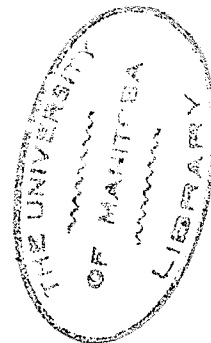 THE UNIVERSITY
OF MANITOBA
LIBRARY